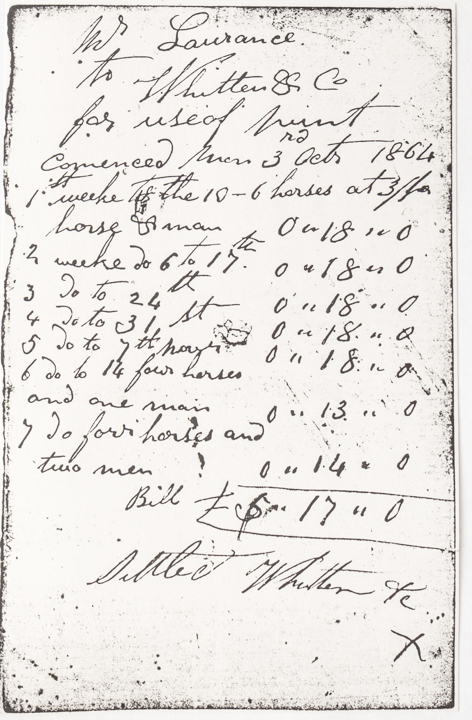 Mr Laurance.
to Whitten & Co
for use of punt
Comenced Mon 3rd Octr 1864
1st weeke to the 10 - 6 horses at 3/ for
horse & man 0 " 18 " 0
2 weeke do 6 to 17th. 0 " 18 " 0
3 do to 24th 0 " 18 " 0
4 do to 31st 0 " 18 " 0
5 do to 7th 0 " 18 " 0
6 do to 14 four horses
and one man 0 " 13 " 0
7 do four horses and
two men 0 " 14 " 0
Bill £ 5 " 17 " 0
Settled Whitten &c
X